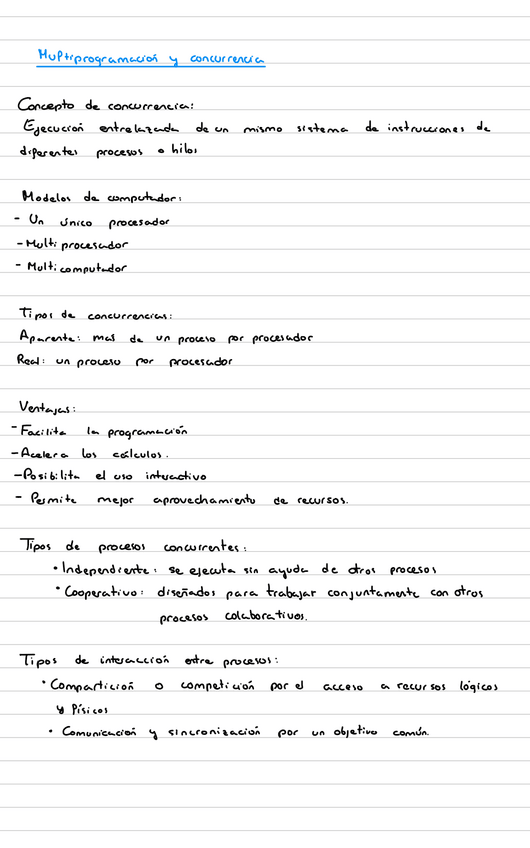 Multiprogramación y concurrencia
Concepto de concurrencia:
Ejecución entrelazada de un mismo sistema de instrucciones de
diferentes procesos o hilos
Modelos de computador:
- Un único procesador
- Multiprocesador
- Multicomputador
Tipos de concurrencias:
Aparente: mas de un proceso por procesador
Real: un proceso por procesador
Ventajas:
- Facilita la programación
- Acelera los cálculos.
- Posibilita el uso interactivo
- Permite mejor aprovechamiento de recursos.
Tipos de procesos concurrentes:
• Independiente: se ejecuta sin ayuda de otros procesos
• Cooperativo: diseñados para trabajar conjuntamente con otros
procesos colaborativos.
Tipos de interacción entre procesos:
• Compartición o competición por el acceso a recursos lógicos
y físicos
• Comunicación y sincronización por un objetivo común.